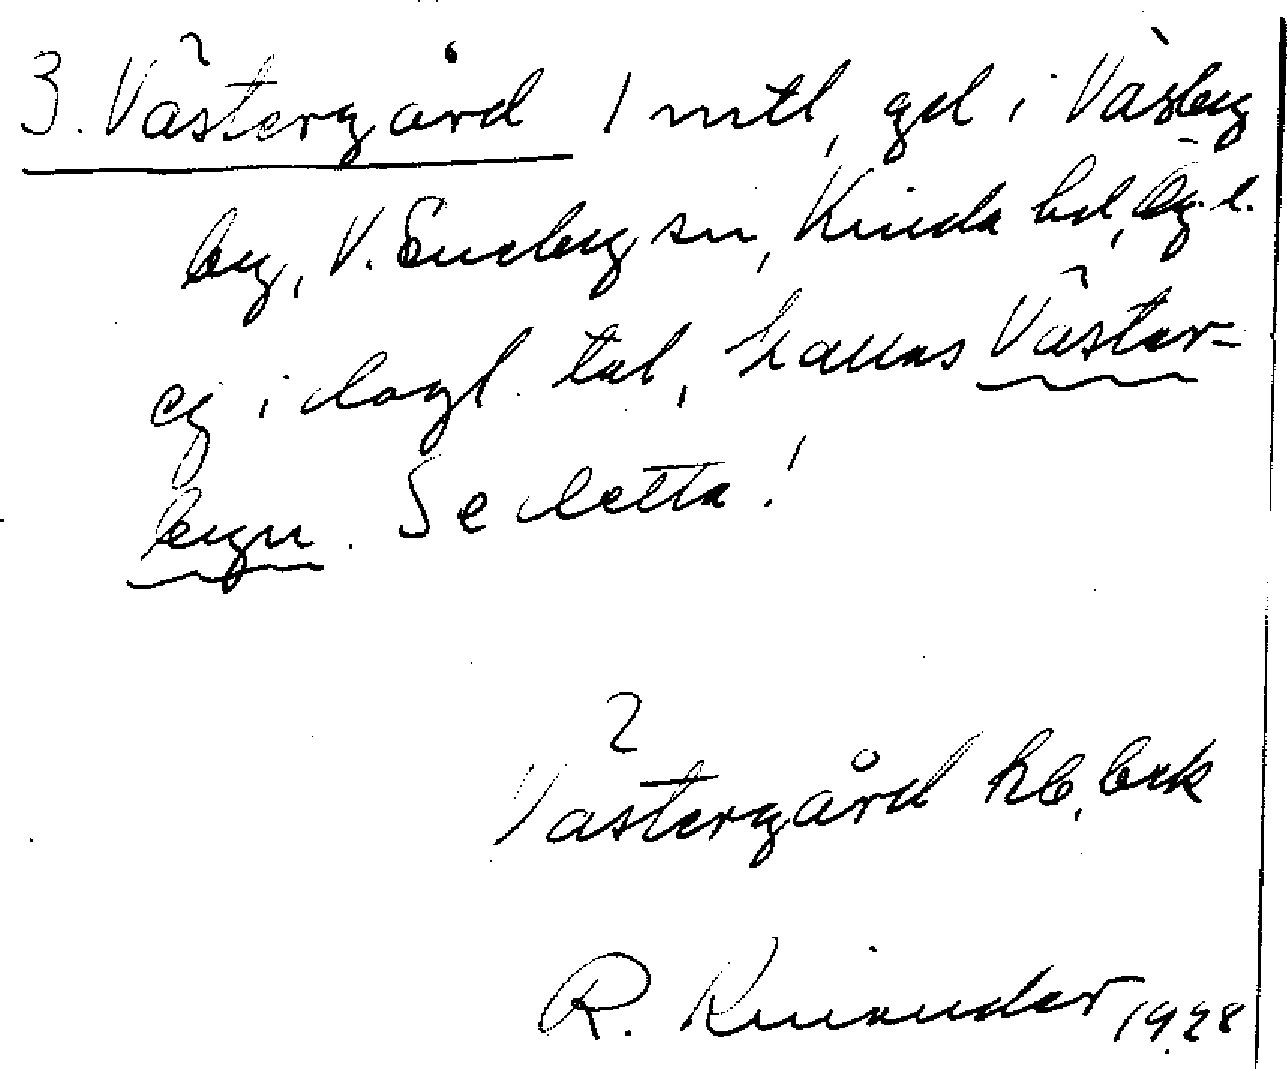 3. Västergård 1 mtl, gd i Väsby
by, V. Eneby sn, Kinda hd, Ög. l.
ej i dagl. tal, kallas Väster-
bergn. Se detta!
Västergård hb, bek
R. Kinander 1928